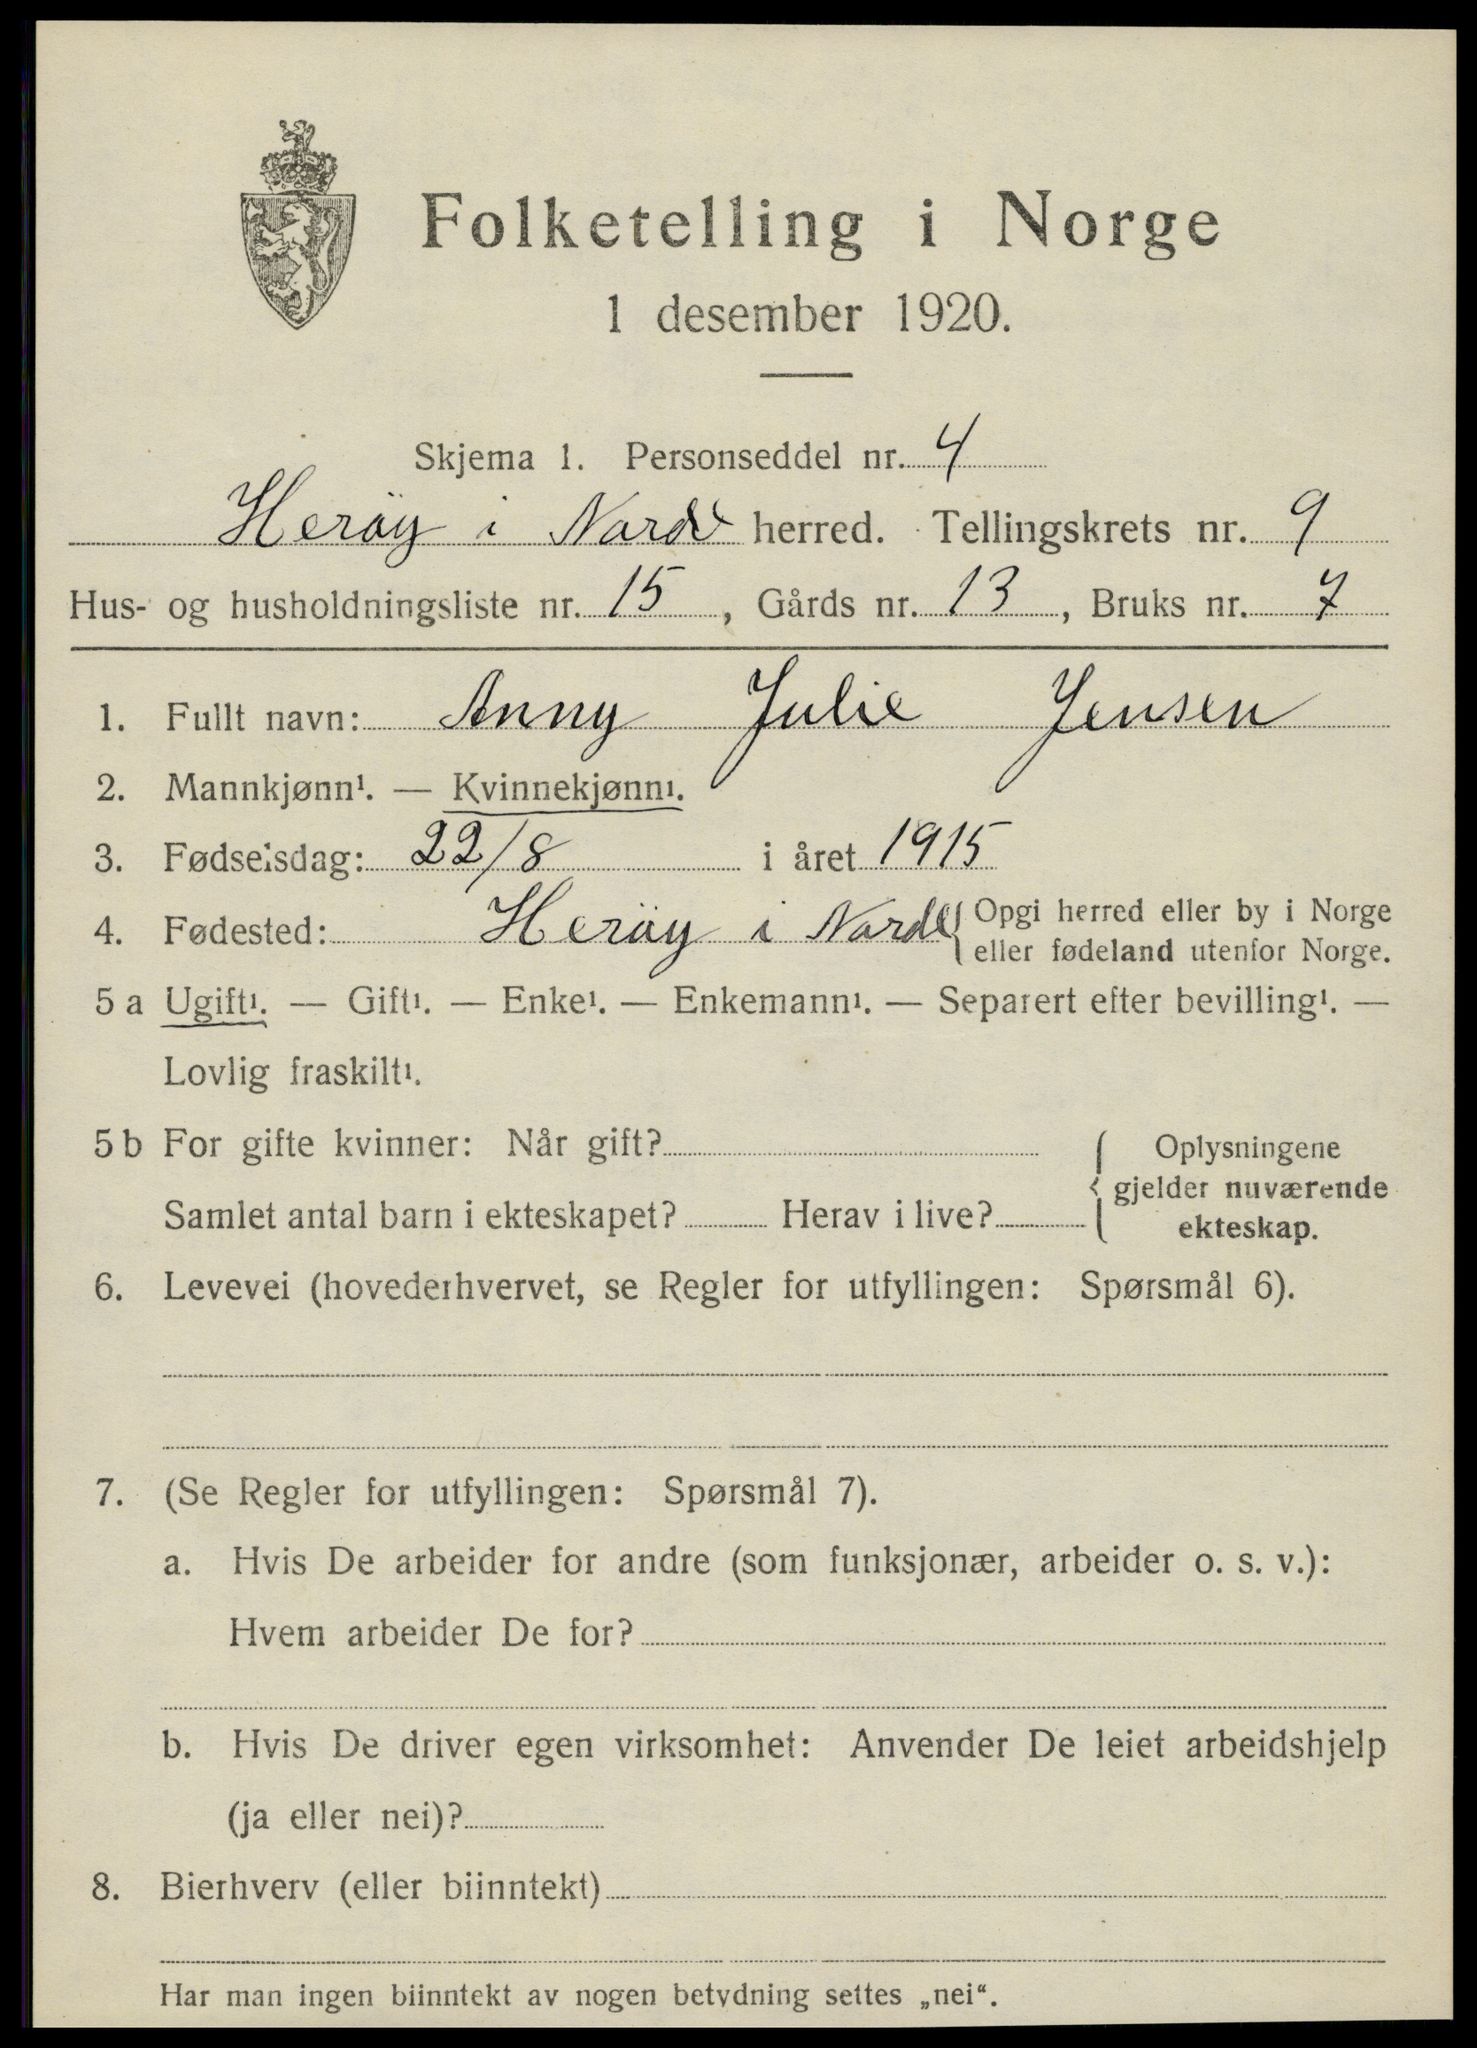 Folketelling i Norge
1 desember 1920.
Skjema 1. Personseddel nr. 4
Herøy i Nordl herred. Tellingskrets nr. 9
Hus- og husholdningsliste nr. 15, Gårds nr. 13, Bruks nr. 7
1. Fullt navn: Anny Julie Jensen
2. Mannkjønn¹. — Kvinnekjønn¹.
3. Fødselsdag: 22/8 i året 1915
4. Fødested: Herøy i Nordl { Opgi herred eller by i Norge
eller fødeland utenfor Norge.
5 a Ugift¹. — Gift¹. — Enke¹. — Enkemann¹. — Separert efter bevilling¹. —
Lovlig fraskilt¹.
5 b For gifte kvinner: Når gift? { Oplysningene
gjelder nuværende
Samlet antal barn i ekteskapet? Herav i live? ekteskap.
6. Levevei (hovederhvervet, se Regler for utfyllingen: Spørsmål 6).
7. (Se Regler for utfyllingen: Spørsmål 7).
a. Hvis De arbeider for andre (som funksjonær, arbeider o. s. v.):
Hvem arbeider De for?
b. Hvis De driver egen virksomhet: Anvender De leiet arbeidshjelp
(ja eller nei)?
8. Bierhverv (eller biinntekt)
Har man ingen biinntekt av nogen betydning settes „nei“.